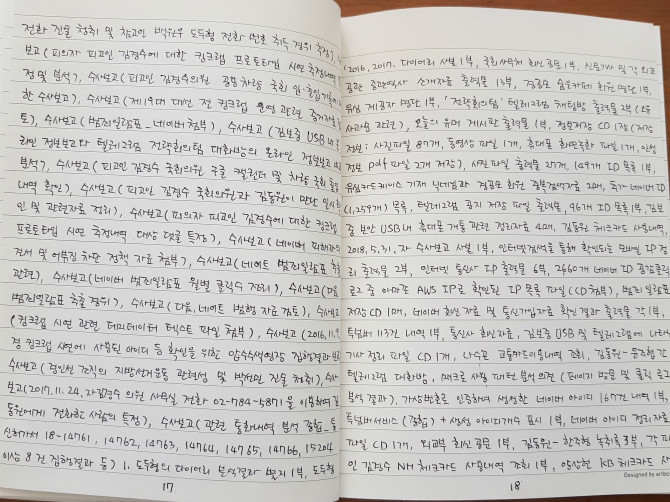 전화 진술 청취 및 참고인 박원우 도두형 전화 번호 취득 경위 추정),
보고(피의자 피고인 김경수에 대한 킹크랩 프로토타입 시연 측정내역
정 및 분석), 수사보고(피고인 김경수의원 공용차량 국회 입·출입기록
한 수사보고), 수사보고(제19대 대선 전 킹크랩 운영 관련 증거자료
토), 수사보고(범죄일람표_네이버 첨부), 수사보고(김보중 USB 내
라인 정보보고와 텔레그램 전략회의팀 대화방의 온라인 정보보고 비교
분석), 수사보고(피고인 김경수 국회의원 구글 캘린더 및 차량 국회 출입
내역 확인), 수사보고(피고인 김경수 국회의원과 김동원이 만난 일시
인 및 관련자료 정리), 수사보고(피의자 피고인 김경수에 대한 킹크랩
프로토타입 시연 측정내역 대상 댓글 특정), 수사보고(네이버 피해자
견서 및 어뷰징 차단 정책 자료 첨부), 수사보고(네이트 범죄일람표 추출
관련), 수사보고(네이버 범죄일람표 월별 클릭수 정리), 수사보고(다음
범죄일람표 추출 경위), 수사보고(다음, 네이트 범행 자료 검토), 수사보고
(킹크랩 시연 관련 더미데이터 텍스트 파일 첨부), 수사보고(2016.11.9.
경 킹크랩 시연에 사용된 아이디 등 확인을 위한 압수수색영장 집행결과
수사보고(경인선 조직의 지방선거운동 관련성 및 박선민 진술 청취), 수사
보고(2017.11.24.자 김경수 의원 사무실 전화 02-784-5871을 이용하여 김
동원에게 전화한 사람의 특정), 수사보고(관련 통화내역 분석 종합-통
신허가서 18-14761, 14762, 14763, 14764, 14765, 14766, 15204
이상 8건 집행결과 등) 1, 도두형의 다이어리 분석결과 별지 1부, 도두형
17
2016, 2017. 다이어리 사본 1부, 국회사무처 회신 공문 1부, 신문기사 및 각 외교
공관 총영사 소개자료 출력물 13부, 경공모 숨은카페 회원 명단 1부,
유심 제공자 명단 1부, '전략회의팀' 텔레그램 채팅방 출력물 2부(오
사카 관련), 오늘의 유머 게시판 출력물 1부, 정보저장 CD 1장(저장
정보: 사진파일 87개, 동영상 파일 1개, 휴대폰 화면녹화 파일 1개, 인영
정보 pdf 파일 2개 저장), 사진파일 출력물 27개, 149개 ID 목록 1부,
유심카드케이스 기재 닉네임과 경공모 회원 정보검색자료 20매, 추가 네이버 ID
(1,259개) 목록, 텔레그램 공지 저장 파일 출력물, 96개 ID 목록 1부, 김보
중 보안 USB 내 휴대폰 개통 관련 정리자료 4매, 김동원 체크카드 사용내역,
2018.5.31.자 수사보고 사본 1부, 인터넷검색을 통해 확인되는 모바일 IP 정
리 출력물 2부, 인터넷 통신사 IP 출력물 6부, 2,560개 네이버 ID 공감클릭
로그 중 아마존 AWS IP로 확인된 IP 목록 파일(CD첨부), 범죄일람표
저장 CD 1매, 네이버 회신자료 및 통신가입자료 확인 결과 출력물 각 1부,
특남버 113건 내역 1부, 통신사 회신자료, 김보중 USB 및 텔레그램에 나타난
기사 정리 파일 CD 1개, 나수근 교통카드이용내역 조회, 김동원-윤평행간
텔레그램 대화방, 매크로 사용 패턴 분석의견(페이지 방문 및 클릭 로그
분석 결과), 가상번호로 인증하여 생성한 네이버 아이디 167건 내역 1부,
투넘버서비스(결합)+생성 아이디개수 표시 1부, 네이버 아이디 정리자료
파일 CD 1개, 외교부 회신 공문 1부, 김동원-한주형 녹취록 3부, 각 피
인 김경수 NH 체크카드 사용내역 조회 1부, 양상현 KB 체크카드 사
18
Designed by